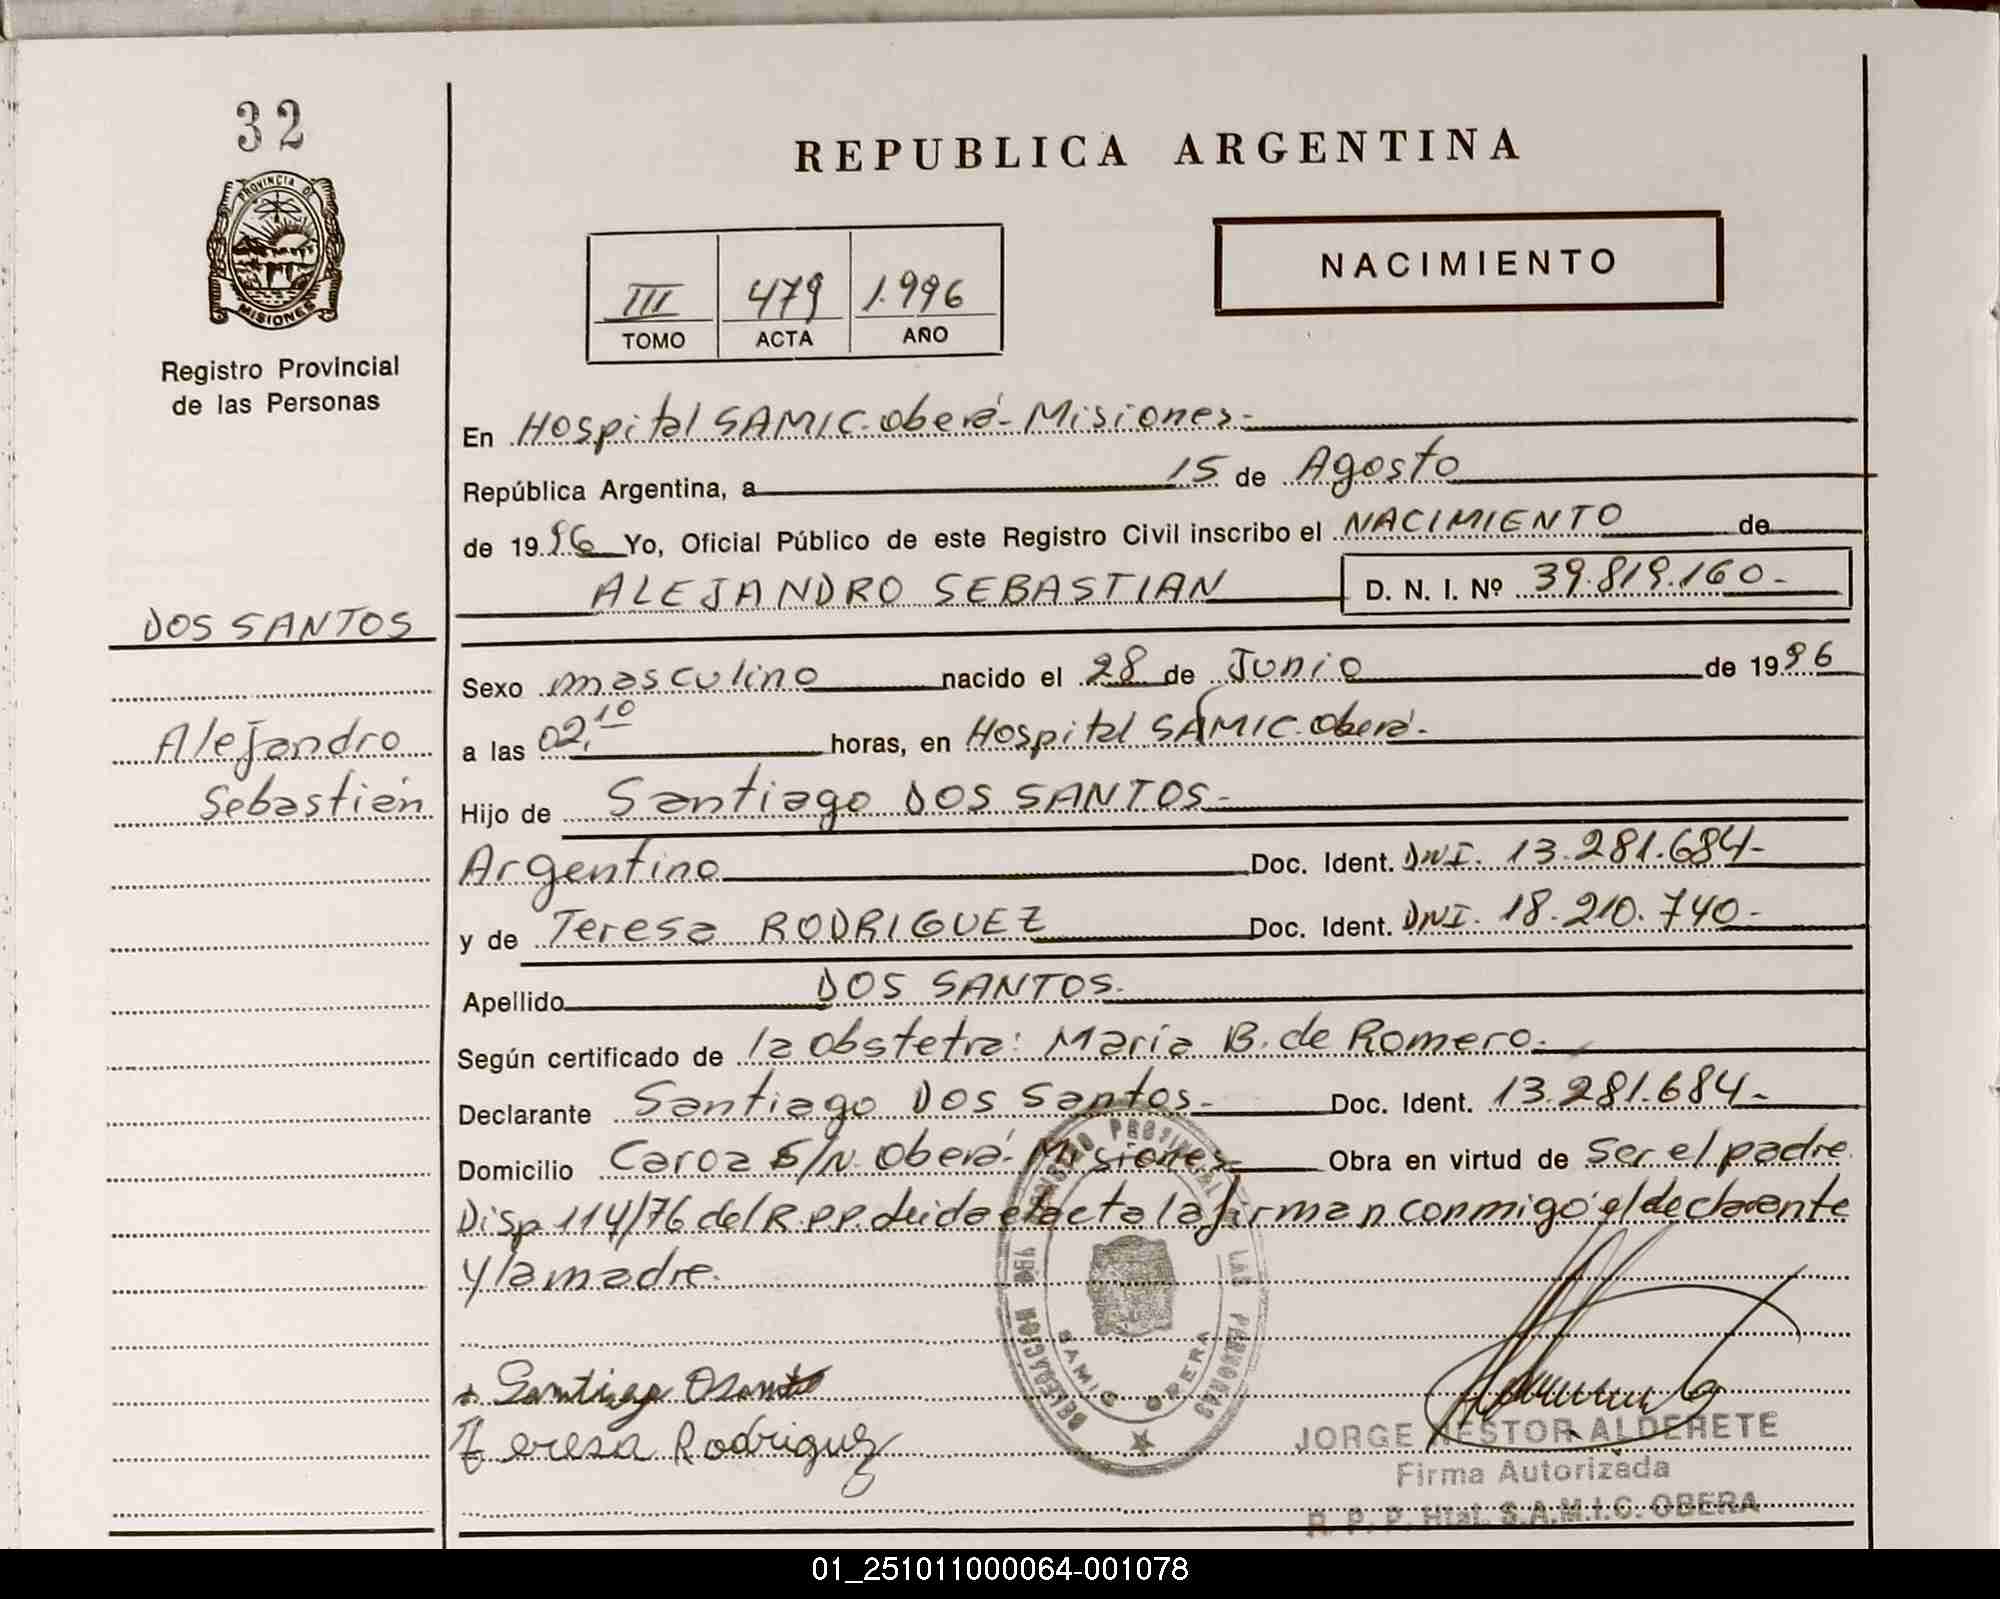 32
PROVINCIA DE
MISIONES
Registro Provincial
de las Personas
REPUBLICA ARGENTINA
NACIMIENTO
III 479 1.996
TOMO ACTA AÑO
En Hospital SAMIC-Oberá-Misiones-
República Argentina, a 15 de Agosto
de 1996 Yo, Oficial Público de este Registro Civil inscribo el NACIMIENTO de
ALEJANDRO SEBASTIAN D. N. I. Nº 39.819.160-
DOS SANTOS
Alejandro
Sebastián
Sexo masculino nacido el 28 de Junio de 1996
a las 02,10 horas, en Hospital SAMIC-Oberá-
Hijo de Santiago DOS SANTOS-
Argentino Doc. Ident. DNI. 13.281.684-
y de Teresa RODRIGUEZ Doc. Ident. DNI. 18.210.740-
Apellido DOS SANTOS-
Según certificado de la obstetra: María B. de Romero-
Declarante Santiago Dos Santos- Doc. Ident. 13.281.684-
Domicilio Caroa S/N. Oberá-Misiones- Obra en virtud de ser el padre
Disp 114/76 del R.P.P. Leida el acta la firman conmigo el declarante
y la madre.
REGISTRO PROVINCIAL DE LAS PERSONAS
DELEGACION
SAMIC OBERA
Santiago Dsantos
Teresa Rodriguez
JORGE NESTOR ALDERETE
Firma Autorizada
R. P. P. Htal. S.A.M.I.C. OBERA
01_251011000064-001078